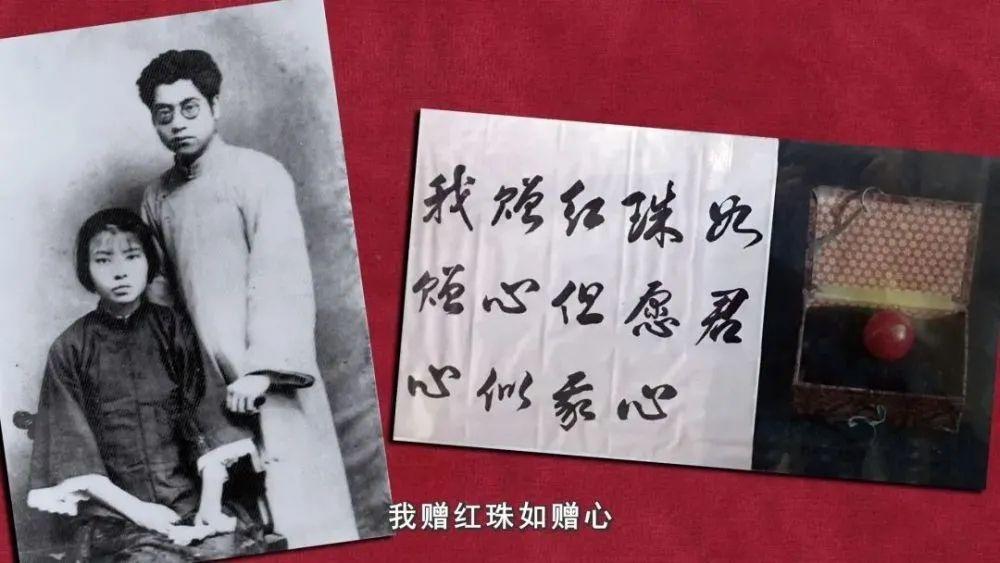 我赠红珠如
赠心但愿君
心似我心
我赠红珠如赠心